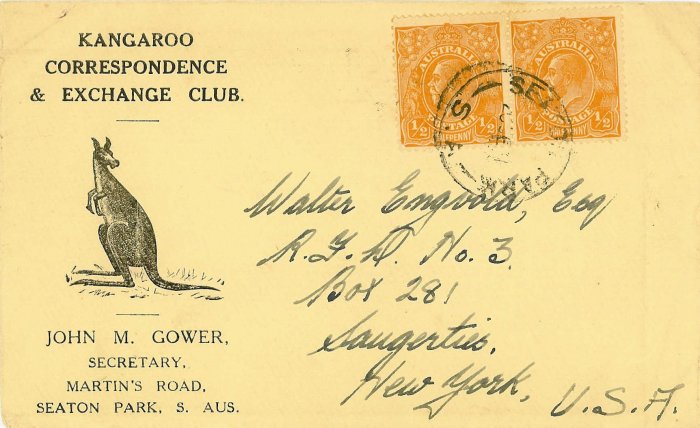 KANGAROO
CORRESPONDENCE
& EXCHANGE CLUB.
JOHN M. GOWER,
SECRETARY,
MARTIN'S ROAD,
SEATON PARK, S. AUS.
AUSTRALIA
POSTAGE
1/2 1/2
HALFPENNY
AUSTRALIA
POSTAGE
1/2 1/2
HALFPENNY
PARK
S.A
Walter Engvold, Esq
R.F.D. No. 3.
Box 281
Saugerties,
New York,
U.S.A.